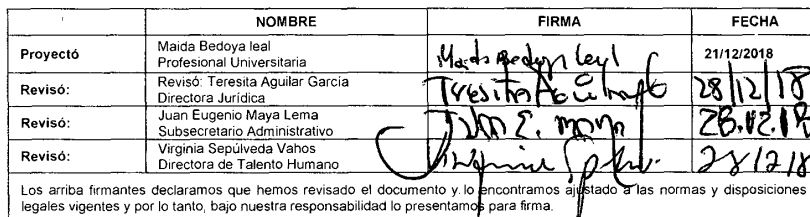 NOMBRE FIRMA FECHA
Proyectó Maida Bedoya leal
Profesional Universitaria Maida Bedoya leal 21/12/2018
Revisó: Revisó: Teresita Aguilar García
Directora Jurídica Teresita Aguilar G 28/12/18
Revisó: Juan Eugenio Maya Lema
Subsecretario Administrativo Juan E. maya 28.12.18
Revisó: Virginia Sepúlveda Vahos
Directora de Talento Humano Virginia 28/12/18
Los arriba firmantes declaramos que hemos revisado el documento y lo encontramos ajustado a las normas y disposiciones
legales vigentes y por lo tanto, bajo nuestra responsabilidad lo presentamos para firma.